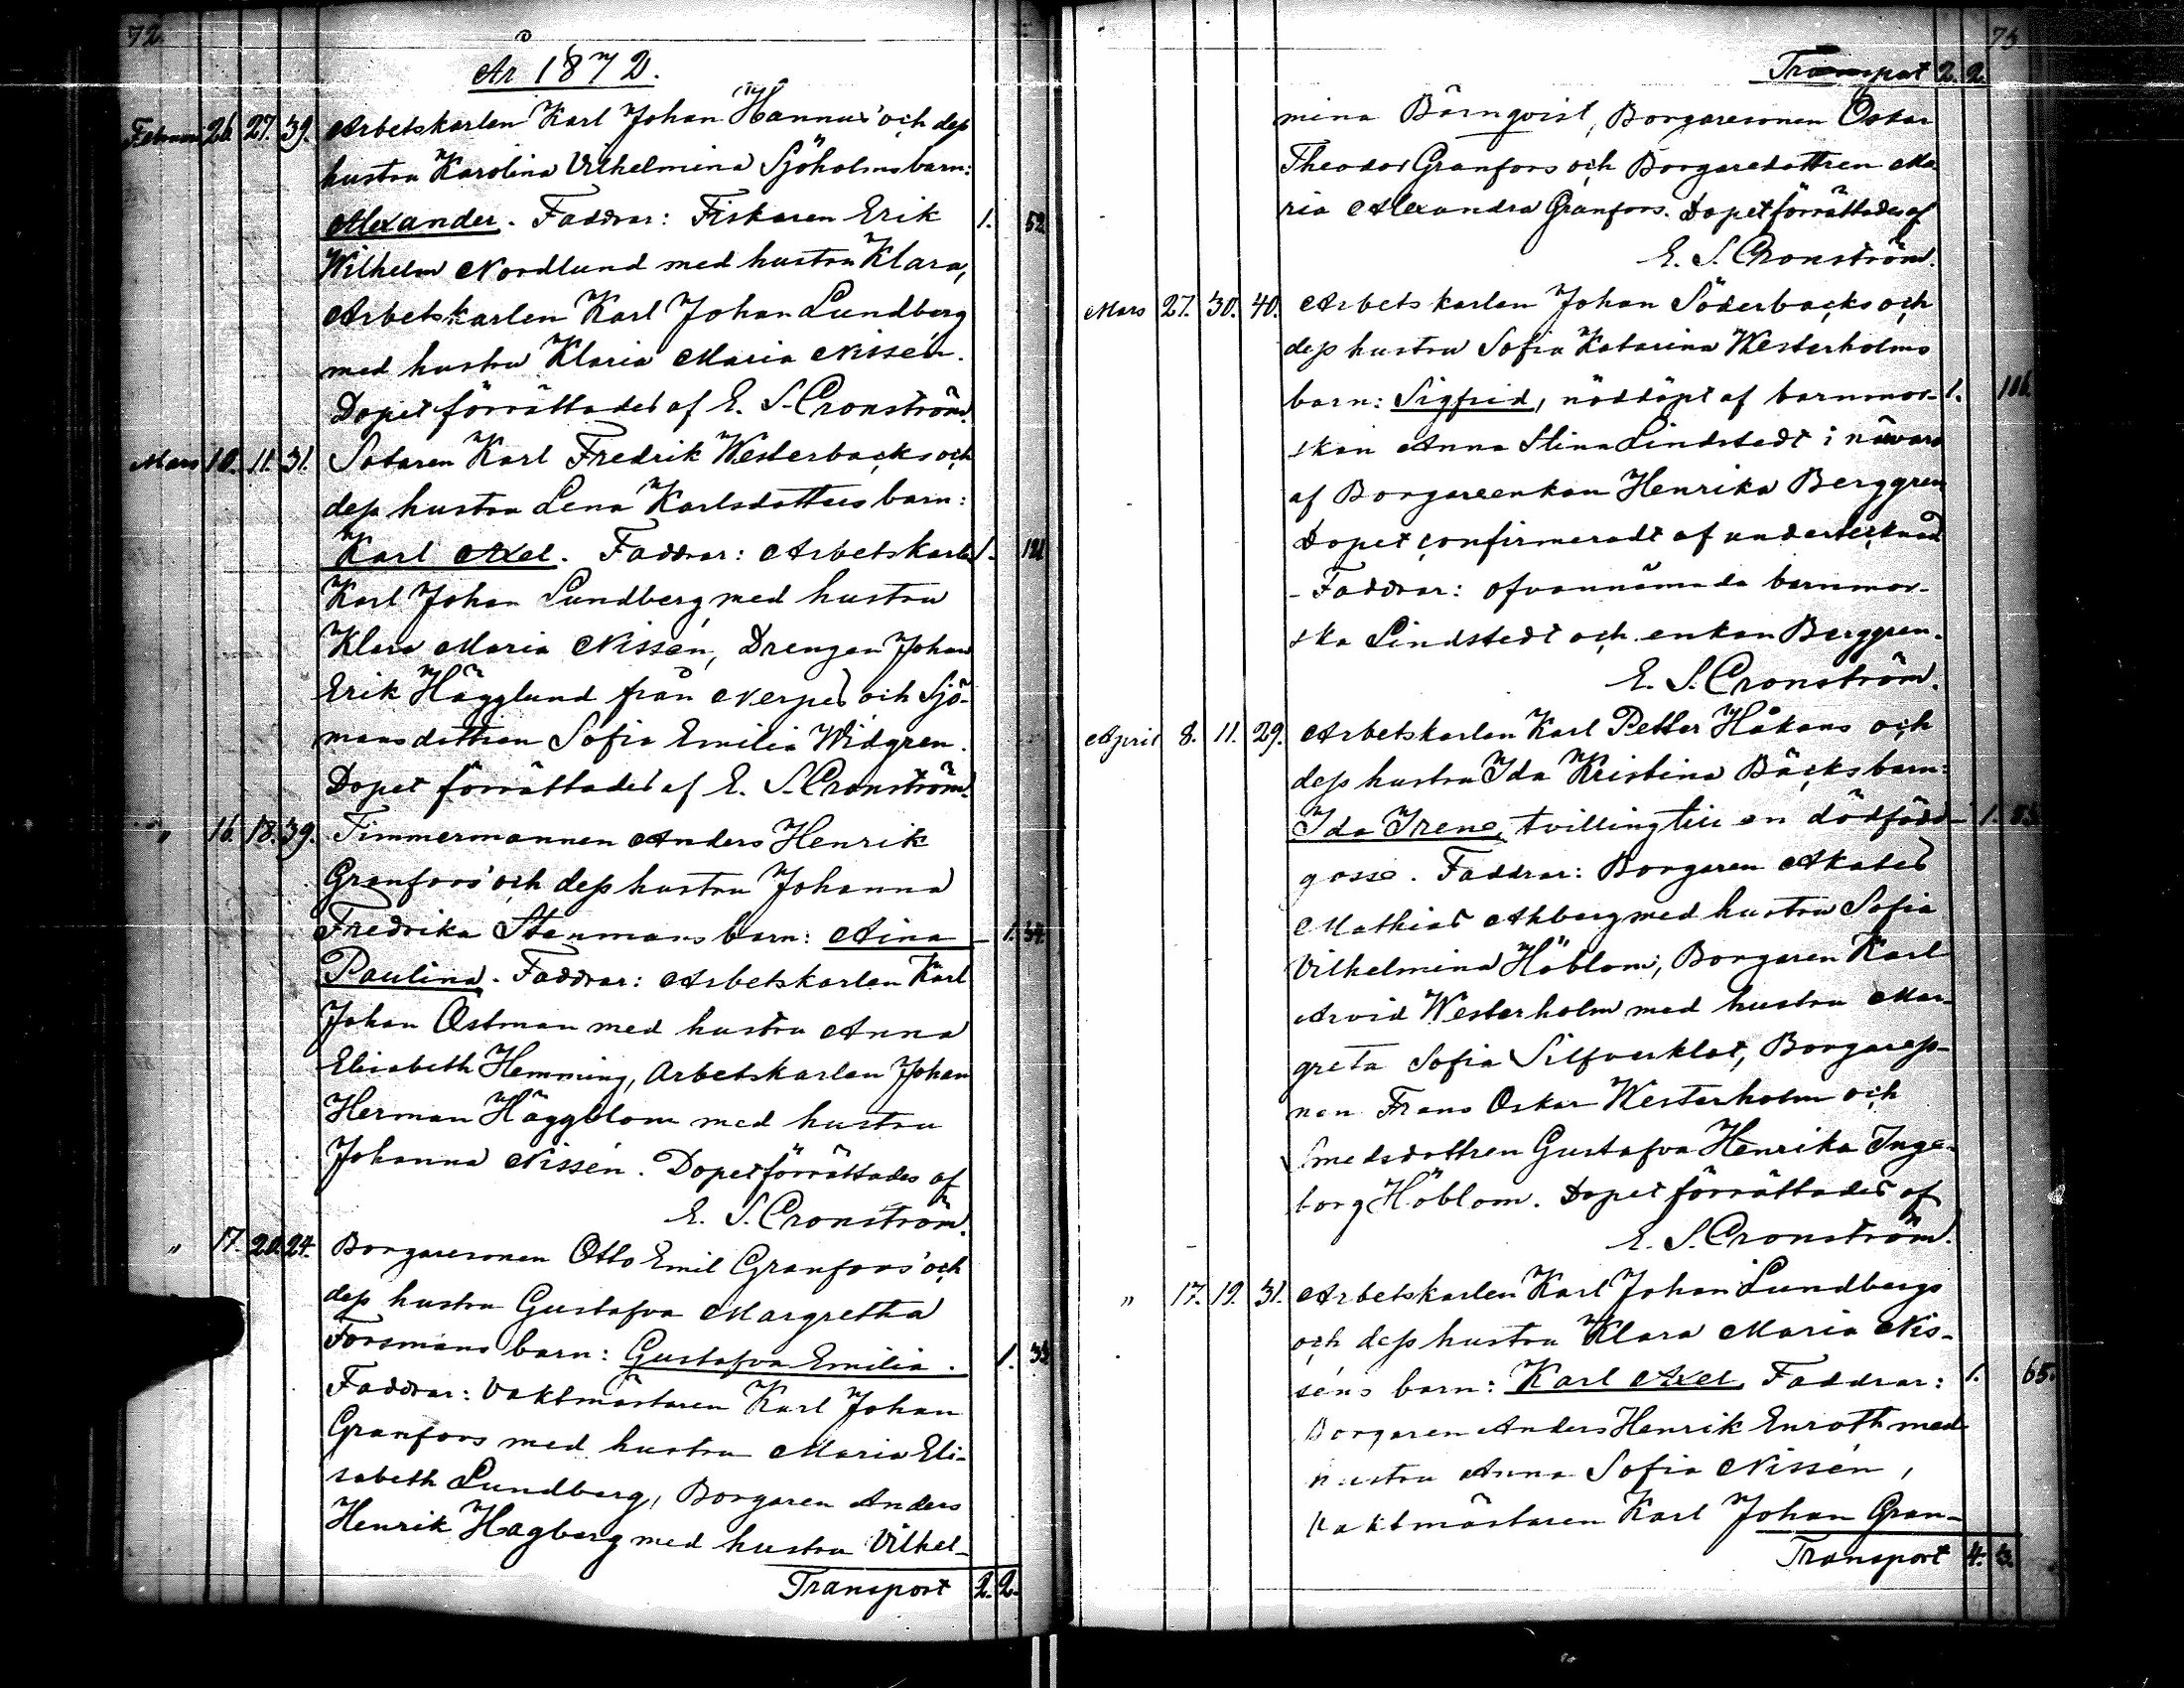 72.
År 1872.
Februari 26. 27. 39. Arbetskarlen Karl Johan Hannus' och dess
hustru Karolina Vilhelmina Sjöholms barn:
Alexander. Faddrar: Fiskaren Erik 1. 52
Wilhelm Nordlund med hustru Klara,
Arbetskarlen Karl Johan Lundberg
med hustru Klaria Maria Nissén.
Dopet förrättades af E. S. Cronström.
Mars 10. 11. 31. Sotaren Karl Fredrik Westerbacks och
dess hustru Lena Karlsdotters barn:
Karl Axel. Faddrar: Arbetskarlen 1.
Karl Johan Lundberg med hustru
Klara Maria Nissén, Drengen Johan
Erik Hägglund från Nerpes och Sjö-
mansdottren Sofia Emilia Widgren.
Dopet förrättades af E. S. Cronström.
" 16. 18. 39. Timmermannen Anders Henrik
Granfors' och dess hustru Johanna
Fredrika Stenmans barn: Aina 1. 34.
Paulina. Faddrar: Arbetskarlen Karl
Johan Östman med hustru Anna
Elisabeth Hemming, Arbetskarlen Johan
Herman Häggblom med hustru
Johanna Nissén. Dopet förrättades af
E. S. Cronström.
" 17. 20. 24. Borgaresonen Otto Emil Granfors' och
dess hustru Gustafva Margretha
Forsmans barn: Gustafva Emilia. 1. 33
Faddrar: Vaktmästaren Karl Johan
Granfors med hustru Maria Eli-
sabeth Lundberg, Borgaren Anders
Henrik Hagberg med hustru Vilhel-
Transport 2. 2.
73.
Transport 2. 2.
mina Börnqvist, Borgaresonen Oskar
Theodor Granfors och Borgaredottren Ma-
ria Alexandra Granfors. Dopet förrättades af
E. S. Cronström.
Mars 27. 30. 40. Arbetskarlen Johan Söderbacks och
dess hustru Sofia Katarina Westerholms
barn: Sigfrid, nöddöpt af barnmor- 1. 106.
skan Anna Stina Lindstedt i närvaro
af Borgareenkan Henrika Berggren
Dopet confirmeradt af undertecknad
- Faddrar: ofvannämnda barnmor-
ska Lindstedt och enkan Berggren.
E. S. Cronström.
April 8. 11. 29. Arbetskarlen Karl Petter Håkans och
dess hustru Ida Kristina Bäcks barn:
Ida Irene, tvilling till en dödfödd 1.
gosse. Faddrar: Borgaren Akates
Mathias Åkberg med hustru Sofia
Vilhelmina Höblom, Borgaren Karl
Arvid Westerholm med hustru Mar-
greta Sofia Silfverklot, Borgareso-
nen Frans Oskar Westerholm och
Smedsdottren Gustafva Henrika Inge-
borg Höblom. Dopet förrättades af
E. S. Cronström.
" 17. 19. 31. Arbetskarlen Karl Johan Lundbergs
och dess hustru Klara Maria Nis-
séns barn: Karl Axel. Faddrar: 1. 65.
Borgaren Anders Henrik Enroth med
hustru Anna Sofia Nissén,
Vaktmästaren Karl Johan Gran-
Transport 4. 3.